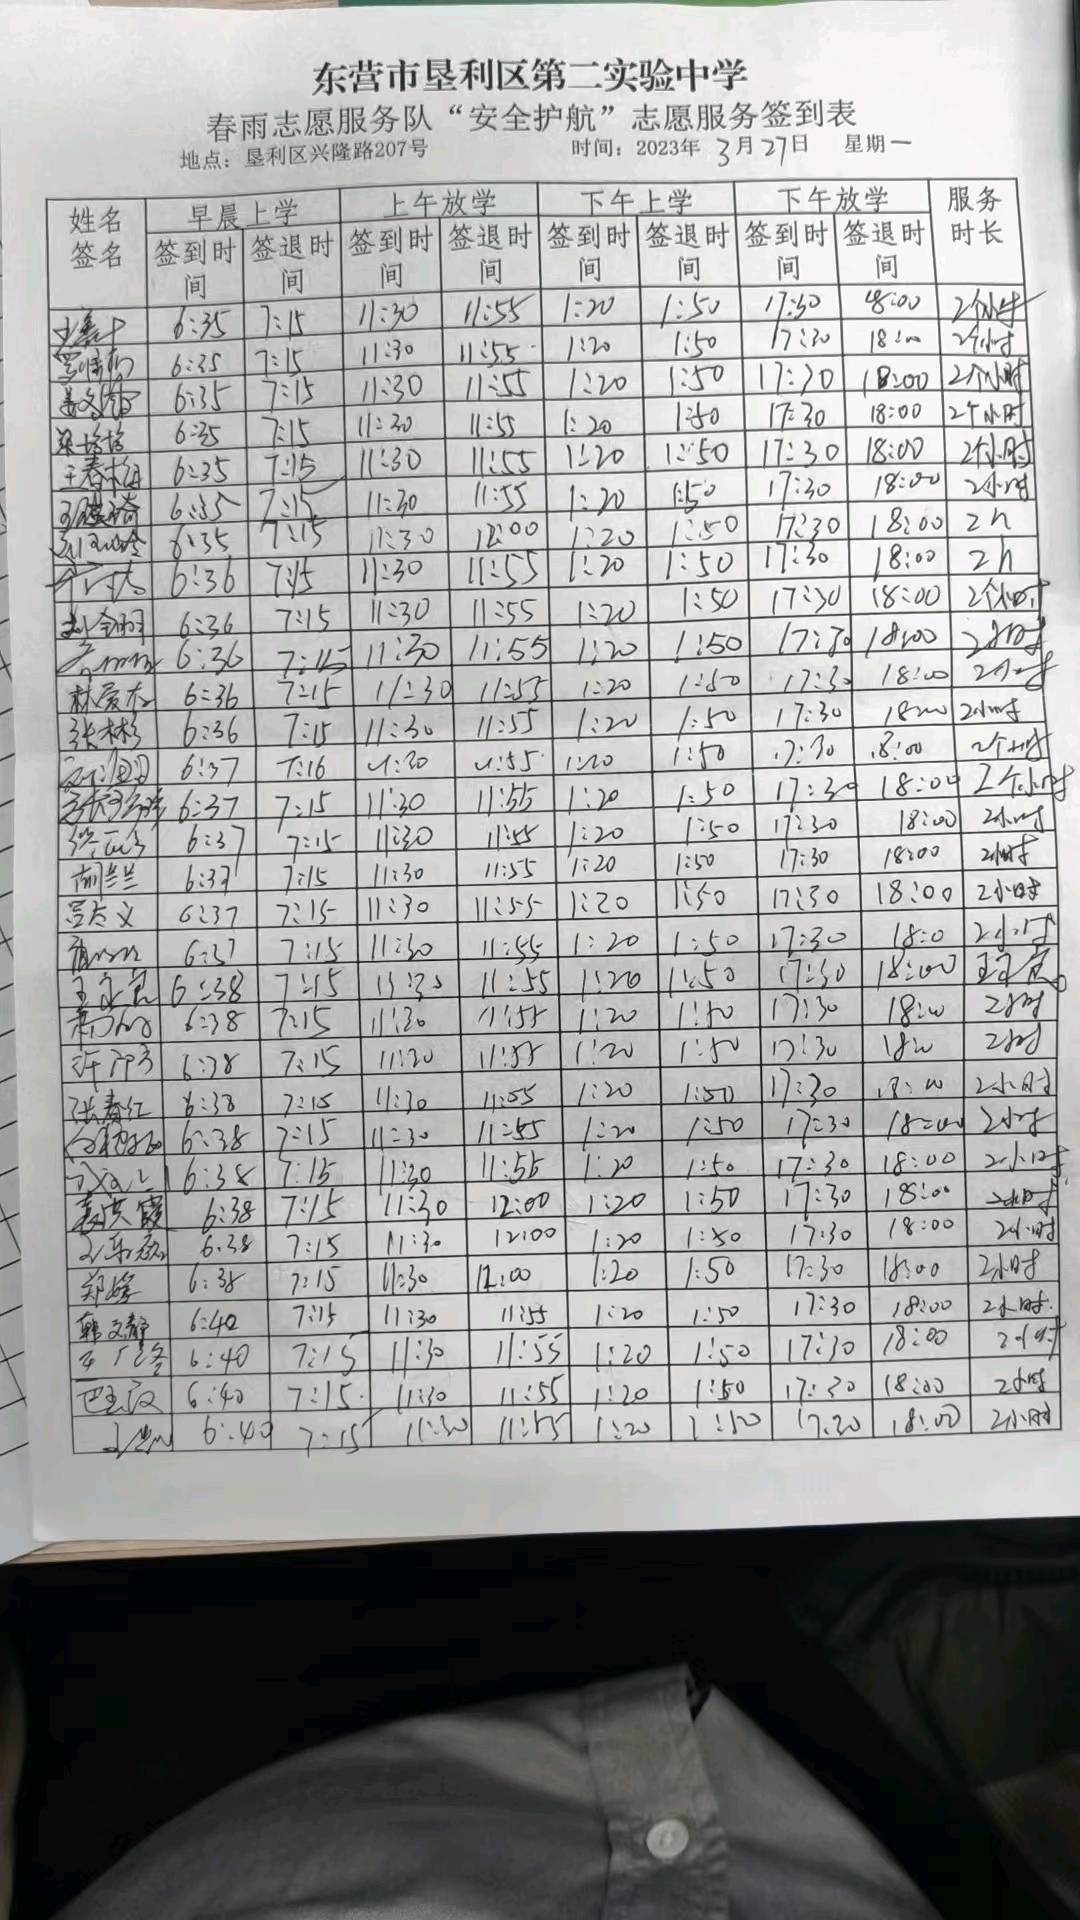 东营市垦利区第二实验中学
春雨志愿服务队“安全护航”志愿服务签到表
地点：垦利区兴隆路207号 时间：2023年3月27日 星期一
姓名签名 早晨上学 上午放学 下午上学 下午放学 服务时长
签到时间 签退时间 签到时间 签退时间 签到时间 签退时间 签到时间 签退时间
6:35 7:15 11:30 11:55 1:20 1:50 17:30 18:00 2个小时
6:35 7:15 11:30 11:55 1:20 1:50 17:30 18:00 2个小时
6:35 7:15 11:30 11:55 1:20 1:50 17:30 18:00 2个小时
6:35 7:15 11:30 11:55 1:20 1:50 17:30 18:00 2个小时
王春梅 6:35 7:15 11:30 11:55 1:20 1:50 17:30 18:00 2小时
6:35 7:15 11:30 11:55 1:20 1:50 17:30 18:00 2小时
6:35 7:15 11:30 12:00 1:20 1:50 17:30 18:00 2h
6:36 7:15 11:30 11:55 1:20 1:50 17:30 18:00 2h
6:36 7:15 11:30 11:55 1:20 1:50 17:30 18:00 2个小时
6:36 7:15 11:30 11:55 1:20 1:50 17:30 18:00 2小时
6:36 7:15 11:30 11:55 1:20 1:50 17:30 18:00 2小时
张林杉 6:36 7:15 11:30 11:55 1:20 1:50 17:30 18:00 2小时
6:37 7:16 11:30 11:55 1:20 1:50 17:30 18:00 2个小时
6:37 7:15 11:30 11:55 1:20 1:50 17:30 18:00 2个小时
6:37 7:15 11:30 11:55 1:20 1:50 17:30 18:00 2小时
胡兰兰 6:37 7:15 11:30 11:55 1:20 1:50 17:30 18:00 2小时
6:37 7:15 11:30 11:55 1:20 1:50 17:30 18:00 2小时
6:37 7:15 11:30 11:55 1:20 1:50 17:30 18:0 2小时
6:38 7:15 11:30 11:55 1:20 1:50 17:30 18:00
6:38 7:15 11:30 11:55 1:20 1:50 17:30 18:00 2小时
6:38 7:15 11:30 11:55 1:20 1:50 17:30 18:00 2小时
张春红 6:38 7:15 11:30 11:55 1:20 1:50 17:30 18:00 2小时
6:38 7:15 11:30 11:55 1:20 1:50 17:30 18:00 2小时
6:38 7:15 11:30 11:55 1:20 1:50 17:30 18:00 2小时
6:38 7:15 11:30 12:00 1:20 1:50 17:30 18:00 2小时
6:38 7:15 11:30 12:00 1:20 1:50 17:30 18:00 2小时
郑婷 6:38 7:15 11:30 12:00 1:20 1:50 17:30 18:00 2小时
韩文静 6:40 7:15 11:30 11:55 1:20 1:50 17:30 18:00 2小时
6:40 7:15 11:30 11:55 1:20 1:50 17:30 18:00 2小时
6:40 7:15 11:30 11:55 1:20 1:50 17:30 18:00 2小时
6:40 7:15 11:30 11:55 1:20 1:50 17:30 18:00 2小时